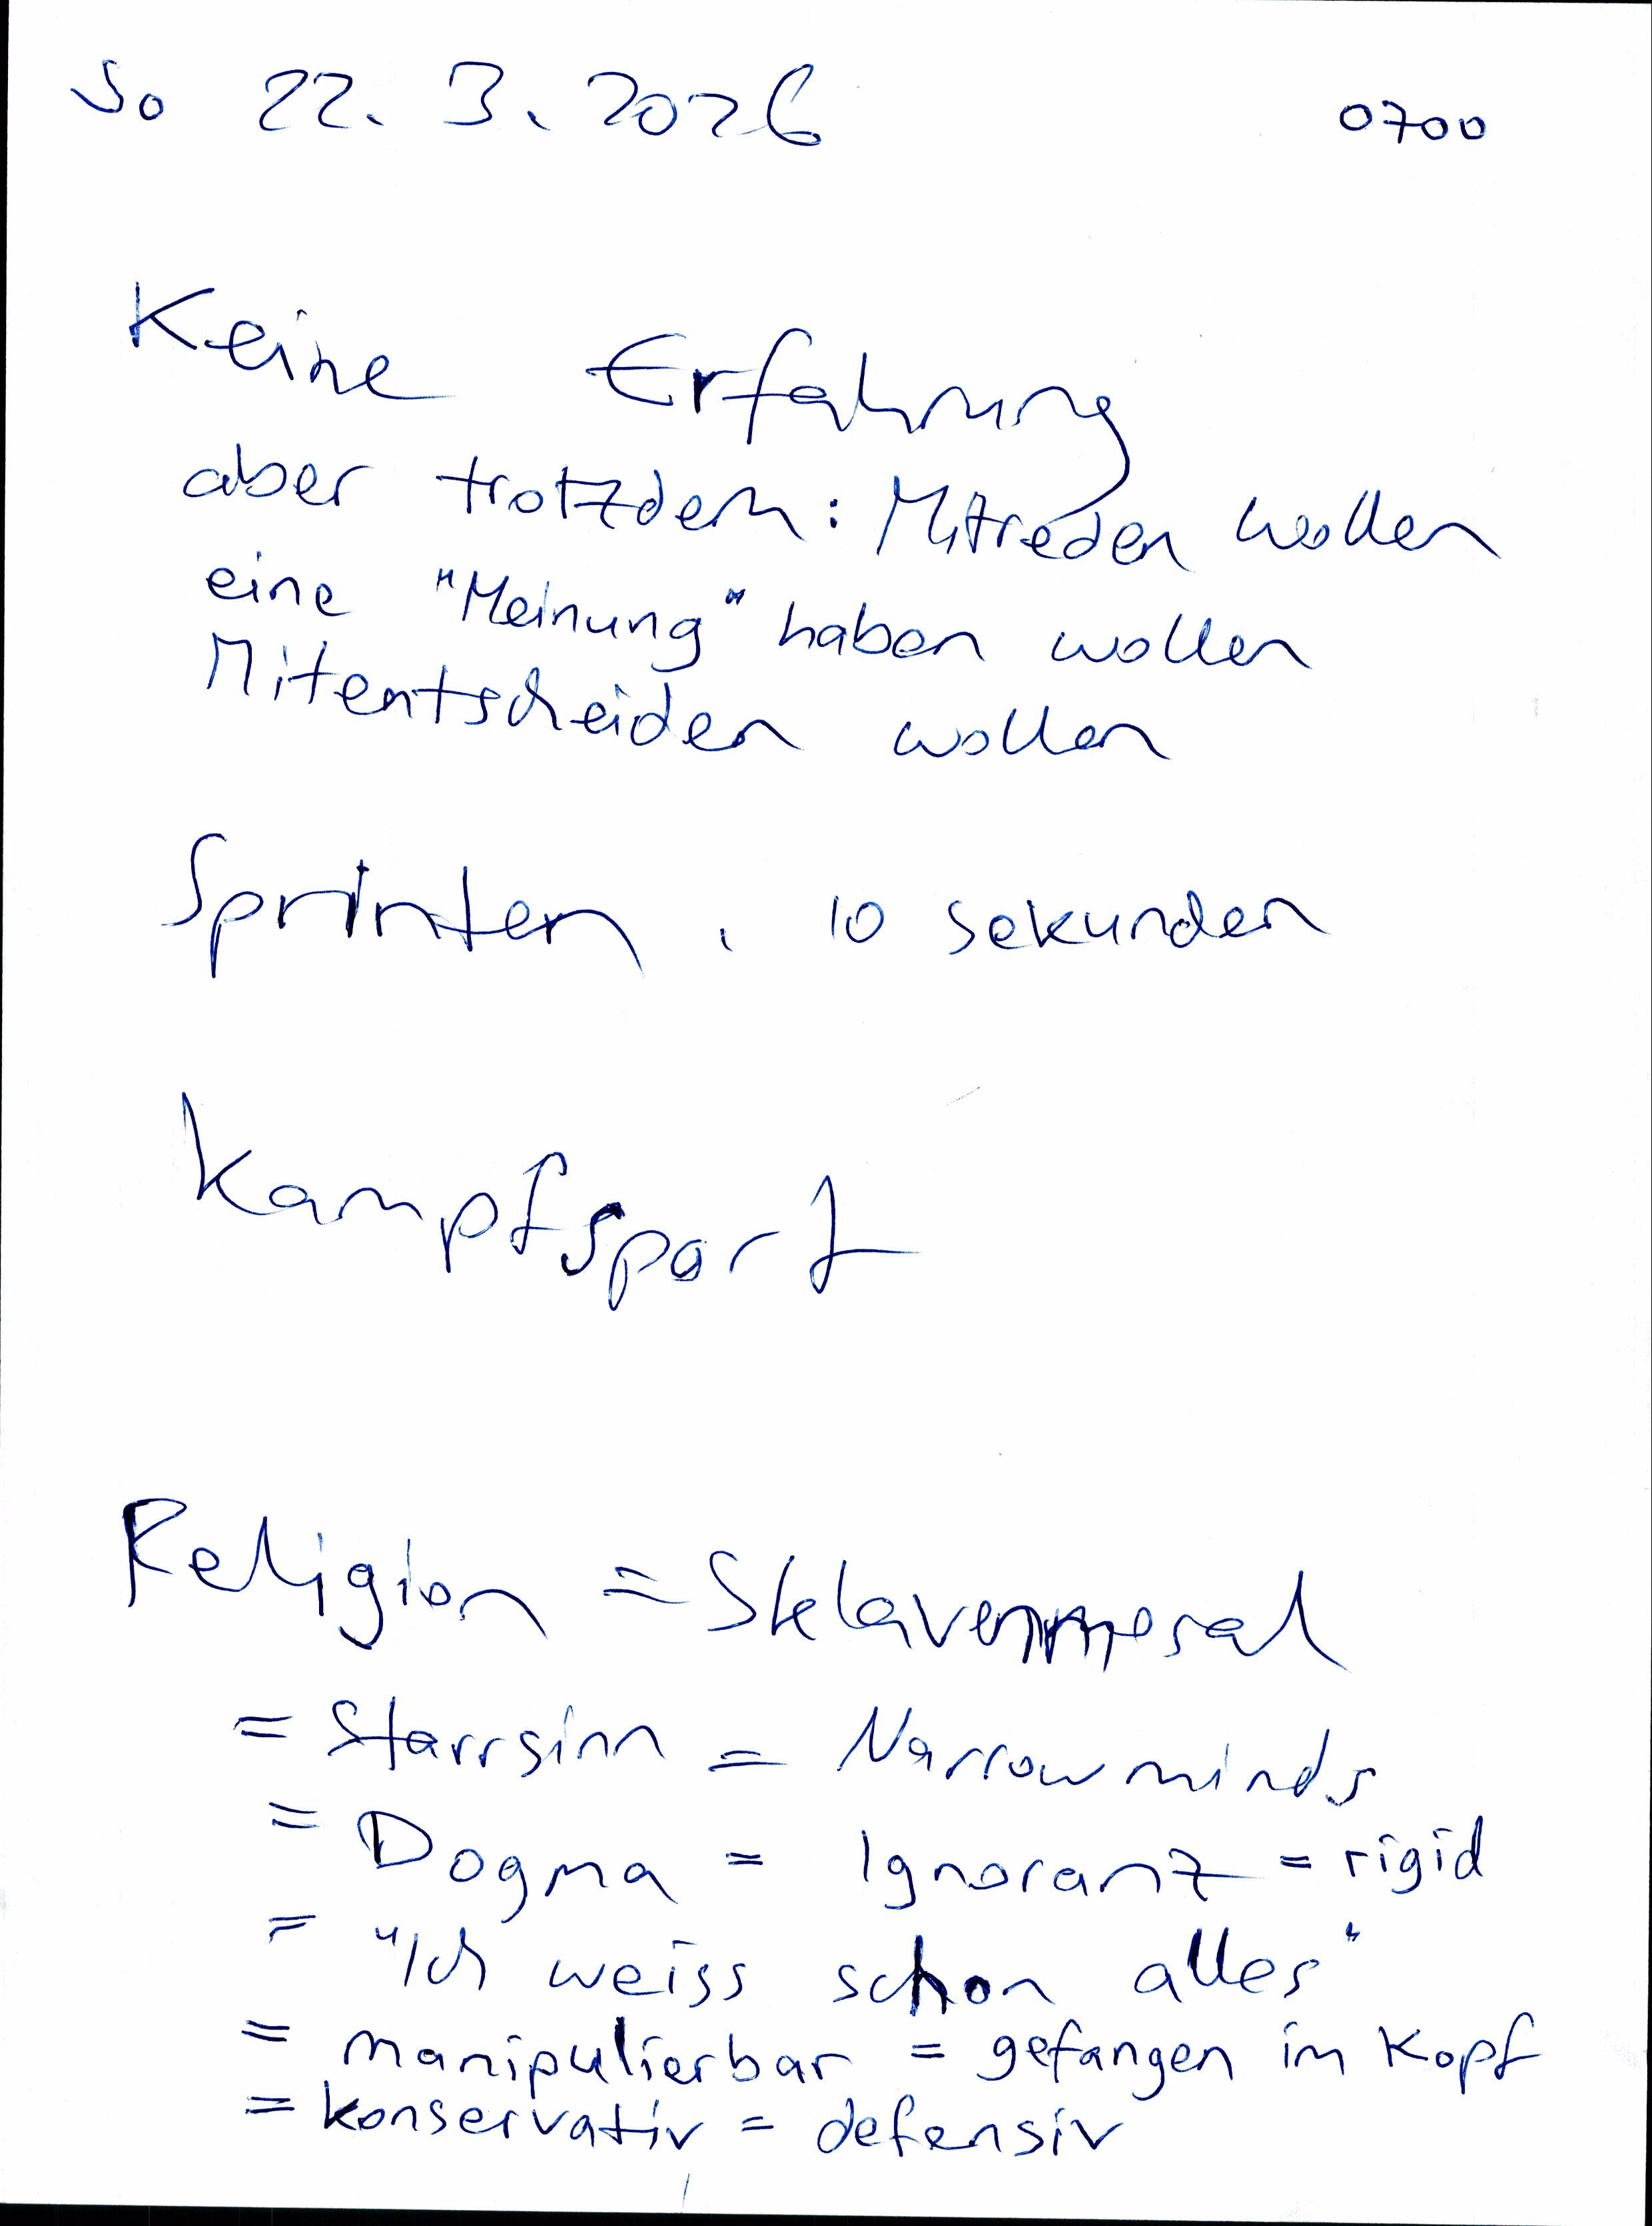 So 22. 3. 2026 0700
Keine Erfahrung
aber trotzdem: Mitreden wollen
eine "Meinung" haben wollen
Mitentscheiden wollen
Sprinten, 10 sekunden
Kampfsport
Religion = Sklavenmoral
= Starrsinn = Narrow minds
= Dogma = Ignoranz = rigid
= "Ich weiss schon alles"
= manipulierbar = gefangen im Kopf
= konservativ = defensiv